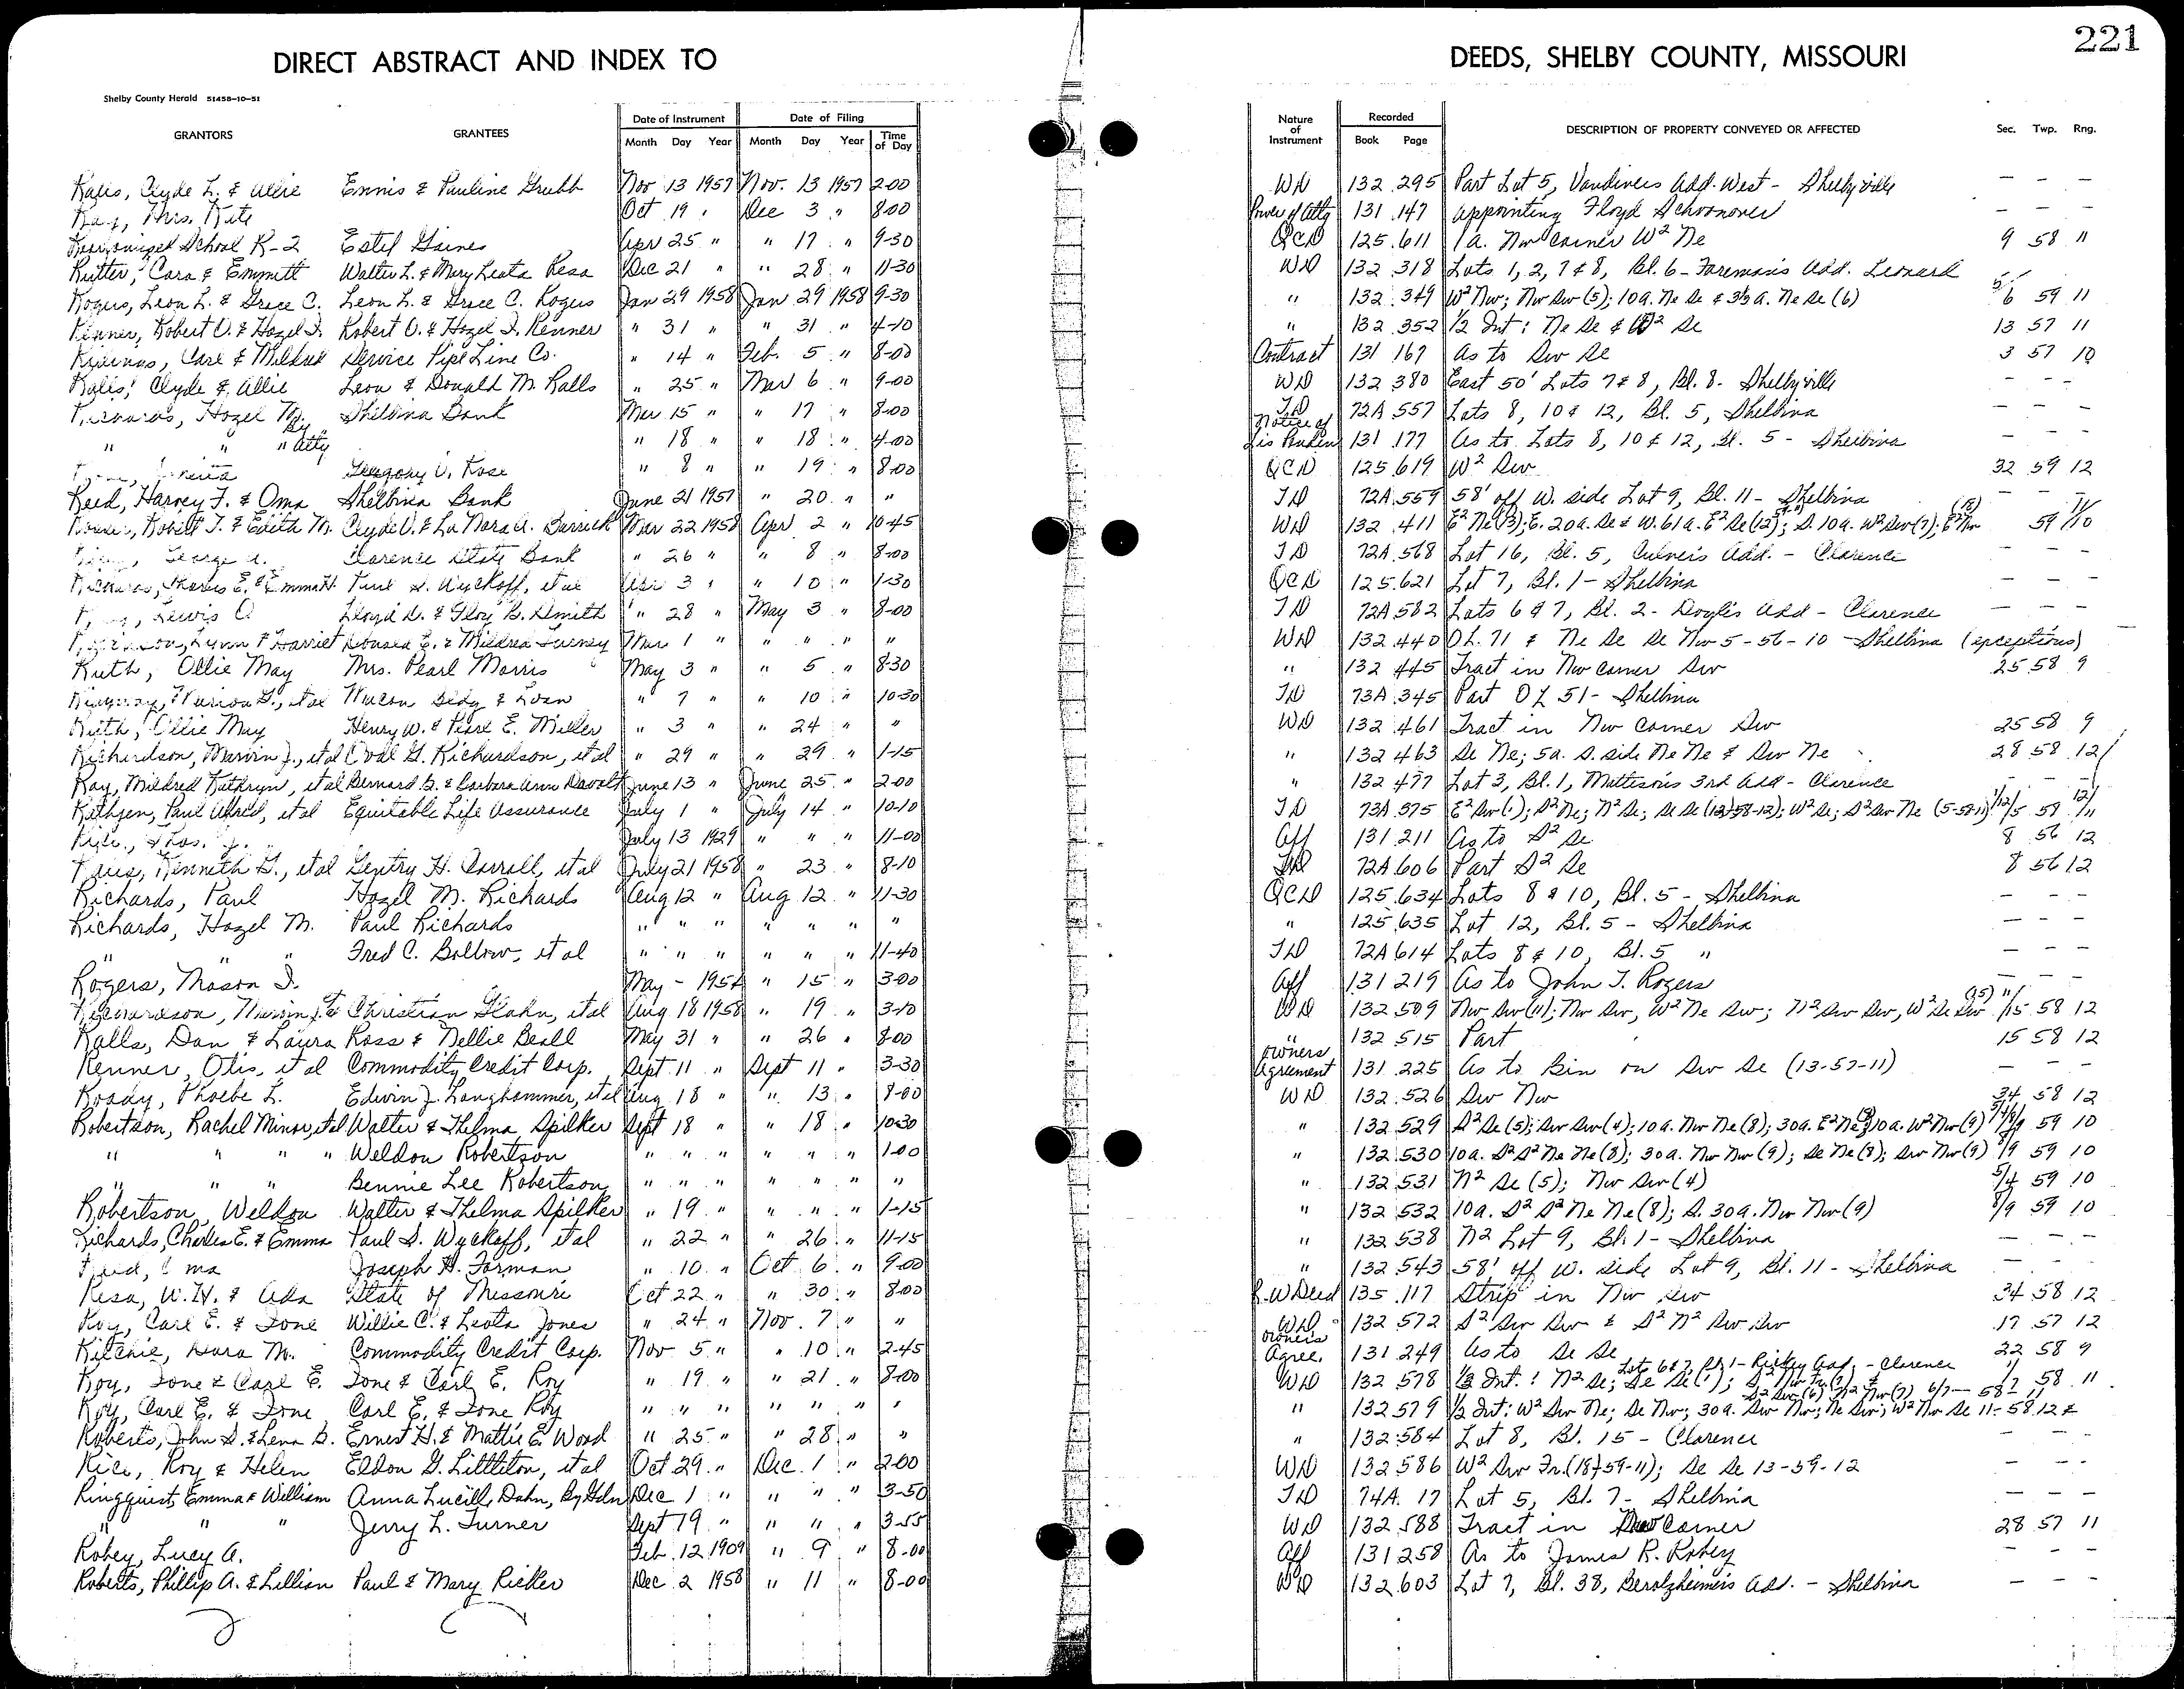 221
DIRECT ABSTRACT AND INDEX TO DEEDS, SHELBY COUNTY, MISSOURI
Shelby County Herald 51458-10-51
GRANTORS GRANTEES Date of Instrument Month Day Year Date of Filing Month Day Year Time of Day Nature of Instrument Recorded Book Page DESCRIPTION OF PROPERTY CONVEYED OR AFFECTED Sec. Twp. Rng.
Ralls, Clyde L. & Allie Ennis & Pauline Grubb Nov 13 1957 Nov. 13 1957 2-00 WD 132 295 Part Lot 5, Vandivers Add. West - Shelbyville — — —
Ray, Mrs. Kate Oct 19 " Dec 3 " 8-00 Power of Atty 131 147 Appointing Floyd Schoonover — — —
Reorganized School R-2 Estel Gaines Apr 25 " " 17 " 9-30 QCD 125 611 1 a. Nw Corner W² Ne 9 58 11
Rutter, Cora & Emmett Walter L. & Mary Leota Resa Dec 21 " " 28 " 11-30 WD 132 318 Lots 1, 2, 7 & 8, Bl. 6 - Foreman's Add. Leonard
Rogers, Leon L. & Grace C. Leon L. & Grace C. Rogers Jan 29 1958 Jan 29 1958 9-30 " 132 349 W² Nw; Nw Sw (5); 10a. Ne Se & 3⅓ a. Ne Se (6) 5/6 59 11
Renner, Robert O. & Hazel I. Robert O. & Hazel I. Renner " 31 " " 31 " 4-10 " 132 352 ½ Int: Ne Se & W² Se 13 57 11
Carl & Mildred Service Pipe Line Co. " 14 " Feb. 5 " 8-00 Contract 131 167 As to Sw Se 3 57 10
Ralls, Clyde & Allie Leon & Donald M. Ralls " 25 " Mar 6 " 9-00 WD 132 380 East 50' Lots 7 & 8, Bl. 8 - Shelbyville — — —
Richards, Hazel M. Shelbina Bank Mar 15 " " 17 " 8-00 TD 72A 557 Lots 8, 10 & 12, Bl. 5, Shelbina — — —
" " " By Atty " 18 " " 18 " 4-00 Notice of Lis Penden 131 177 As to Lots 8, 10 & 12, Bl. 5 - Shelbina — — —
Gregory V. Rose " 8 " " 19 " 8-00 QCD 125 619 W² Sw 32 59 12
Reed, Harvey F. & Oma Shelbina Bank June 21 1957 " 20 " " TD 72A 559 58' off W. side Lot 9, Bl. 11 - Shelbina — — —
Robert T. & Edith M. Clyde O. & La Nora A. Barrick Mar 22 1958 Apr 2 " 10-45 WD 132 411 E² Ne (3); E. 20a. Se & W. 61a. E² Se (2); S. 10a. W² Sw (7); E² Nw 59
George A. Clarence State Bank " 26 " " 8 " 8-00 TD 72A 568 Lot 16, Bl. 5, Culver's Add. - Clarence — — —
Richards, Charles E. & Emma H. Paul S. Wyckoff, et al Apr 3 " " 10 " 1-30 QCD 125 621 Lot 7, Bl. 1 - Shelbina — — —
Lewis O Lloyd D. & Floy B. Smith " 28 " May 3 " 8-00 TD 72A 582 Lots 6 & 7, Bl. 2 - Doyle's Add - Clarence — — —
Lynn & Harriet Donald E. & Mildred Turney Mar 1 " " " " " WD 132 440 OL. 71 & Ne Se Se Nw 5-56-10 - Shelbina (exceptions)
Ruth, Ollie May Mrs. Pearl Morris May 3 " " 5 " 8-30 " 132 445 Tract in Nw Corner Sw 25 58 9
Ridgway, Marion G., et al Macon Bldg & Loan " 7 " " 10 " 10-30 TD 73A 345 Part OL 51 - Shelbina
Ruth, Ollie May Henry W. & Pearl E. Miller " 3 " " 24 " " WD 132 461 Tract in Nw Corner Sw 25 58 9
Richardson, Marvin J., et al Oval G. Richardson, et al " 29 " " 29 " 1-15 " 132 463 Se Ne; 5a. S. side Ne Ne & Sw Ne 28 58 12
Ray, Mildred Kathryn, et al Bernard G. & Barbara Ann Davolt June 13 " June 25 " 2-00 " 132 477 Lot 3, Bl. 1, Mattison's 3rd Add - Clarence — — —
Rethjen, Paul Alfred, et al Equitable Life Assurance July 1 " July 14 " 10-10 TD 73A 375 E² Sw (1); S² Ne; N² Se; Se Se (12)-58-12); W² Se; S² Sw Ne (5-58-11)
July 13 1929 " " " 11-00 Aff 131 211 As to S² Se 8 56 12
Kenneth G., et al Gentry H. Carroll, et al July 21 1958 " 23 " 8-10 TD 72A 606 Part S² Se 8 56 12
Richards, Paul Hazel M. Richards Aug 12 " Aug 12 " 11-30 QCD 125 634 Lots 8 & 10, Bl. 5 - Shelbina — — —
Richards, Hazel M. Paul Richards " " " " " " " " 125 635 Lot 12, Bl. 5 - Shelbina — — —
" " " Fred C. Bollow, et al " " " " " " 11-40 TD 72A 614 Lots 8 & 10, Bl. 5 " — — —
Rogers, Mason I. May - 1954 " 15 " 3-00 Aff 131 219 As to John T. Rogers — — —
Richardson, Marvin J. et al Christian Hahn, et al Aug 18 1958 " 19 " 3-10 WD 132 509 Nw Sw (11); Nw Sw, W² Ne Sw; N² Sw Sw, W² Se Sw (15) 11/15 58 12
Ralls, Dan & Laura Ross & Nellie Beall May 31 " " 26 " 8-00 " 132 515 Part 15 58 12
Renner, Otis, et al Commodity Credit Corp. Sept 11 " Sept 11 " 3-30 Owners Agreement 131 225 As to Bin on Sw Se (13-57-11) — — —
Roady, Phoebe L. Edwin J. Langhammer, et al Aug 18 " " 13 " 8-00 WD 132 526 Sw Nw 34 58 12
Robertson, Rachel Minor, et al Walter & Thelma Spilker Sept 18 " " 18 " 10-30 " 132 529 S² Se (5); Sw Sw (4); 10a. Nw Ne (8); 30a. E² Ne (8); 10a. W² Nw (9) 59 10
" " " " Weldon Robertson " " " " " " 1-00 " 132 530 10a. S² S² Ne Ne (8); 30a. Nw Nw (9); Se Ne (8); Sw Nw (9) 8/9 59 10
" " " Bennie Lee Robertson " " " " " " " " 132 531 N² Se (5); Nw Sw (4) 5/4 59 10
Robertson, Weldon Walter & Thelma Spilker " 19 " " " " 1-15 " 132 532 10a. S² S² Ne Ne (8); S. 30a. Nw Nw (9) 8/9 59 10
Richards, Charles E. & Emma Paul S. Wyckoff, et al " 22 " " 26 " 11-15 " 132 538 N² Lot 9, Bl. 1 - Shelbina — — —
Reed, Oma Joseph H. Forman " 10 " Oct 6 " 9-00 " 132 543 58' off W. side Lot 9, Bl. 11 - Shelbina — — —
Resa, W. H. & Ada State of Missouri Oct 22 " " 30 " 8-00 R-W Deed 135 117 Strip in Nw Sw 34 58 12
Roy, Carl E. & Ione Willie C. & Leota Jones " 24 " Nov. 7 " " WD 132 572 S² Sw Sw & S² N² Sw Sw 17 57 12
Ritchie, Dora M. Commodity Credit Corp. Nov 5 " " 10 " 2-45 Owners Agree. 131 249 As to Se Se 22 58 9
Roy, Ione & Carl E. Ione & Carl E. Roy " 19 " " 21 " 8-00 WD 132 578 ½ Int.: N² Se; Se Se (1); Lots 6 & 7, Bl. 1 - Richey Add. - Clarence 58 11
Roy, Carl E. & Ione Carl E. & Ione Roy " " " " " " " " 132 579 ½ Int: W² Sw Ne; Se Nw; 30a. Sw Nw; Ne Sw; W² Nw Se 11-58-12 &
Roberts, John S. & Lena B. Ernest H. & Mattie E. Wood " 25 " " 28 " " " 132 584 Lot 8, Bl. 15 - Clarence — — —
Rice, Roy & Helen Eldon G. Littleton, et al Oct 29 " Dec. 1 " 2-00 WD 132 586 W² Sw Fr. (18)-59-11); Se Se 13-59-12 — — —
Ringquist, Emma & William Anna Lucille Dahn, By Gdn Dec 1 " " " " 3-50 TD 74A 17 Lot 5, Bl. 7 - Shelbina — — —
" " " Jerry L. Turner Sept 19 " " " " 3-55 WD 132 588 Tract in Corner 28 57 11
Robey, Lucy A. Feb. 12 1909 " 9 " 8-00 Aff 131 258 As to James R. Robey — — —
Roberts, Phillip A. & Lillian Paul & Mary Ricker Dec 2 1958 " 11 " 8-00 WD 132 603 Lot 7, Bl. 38, Berolzheimer's Add. - Shelbina — — —